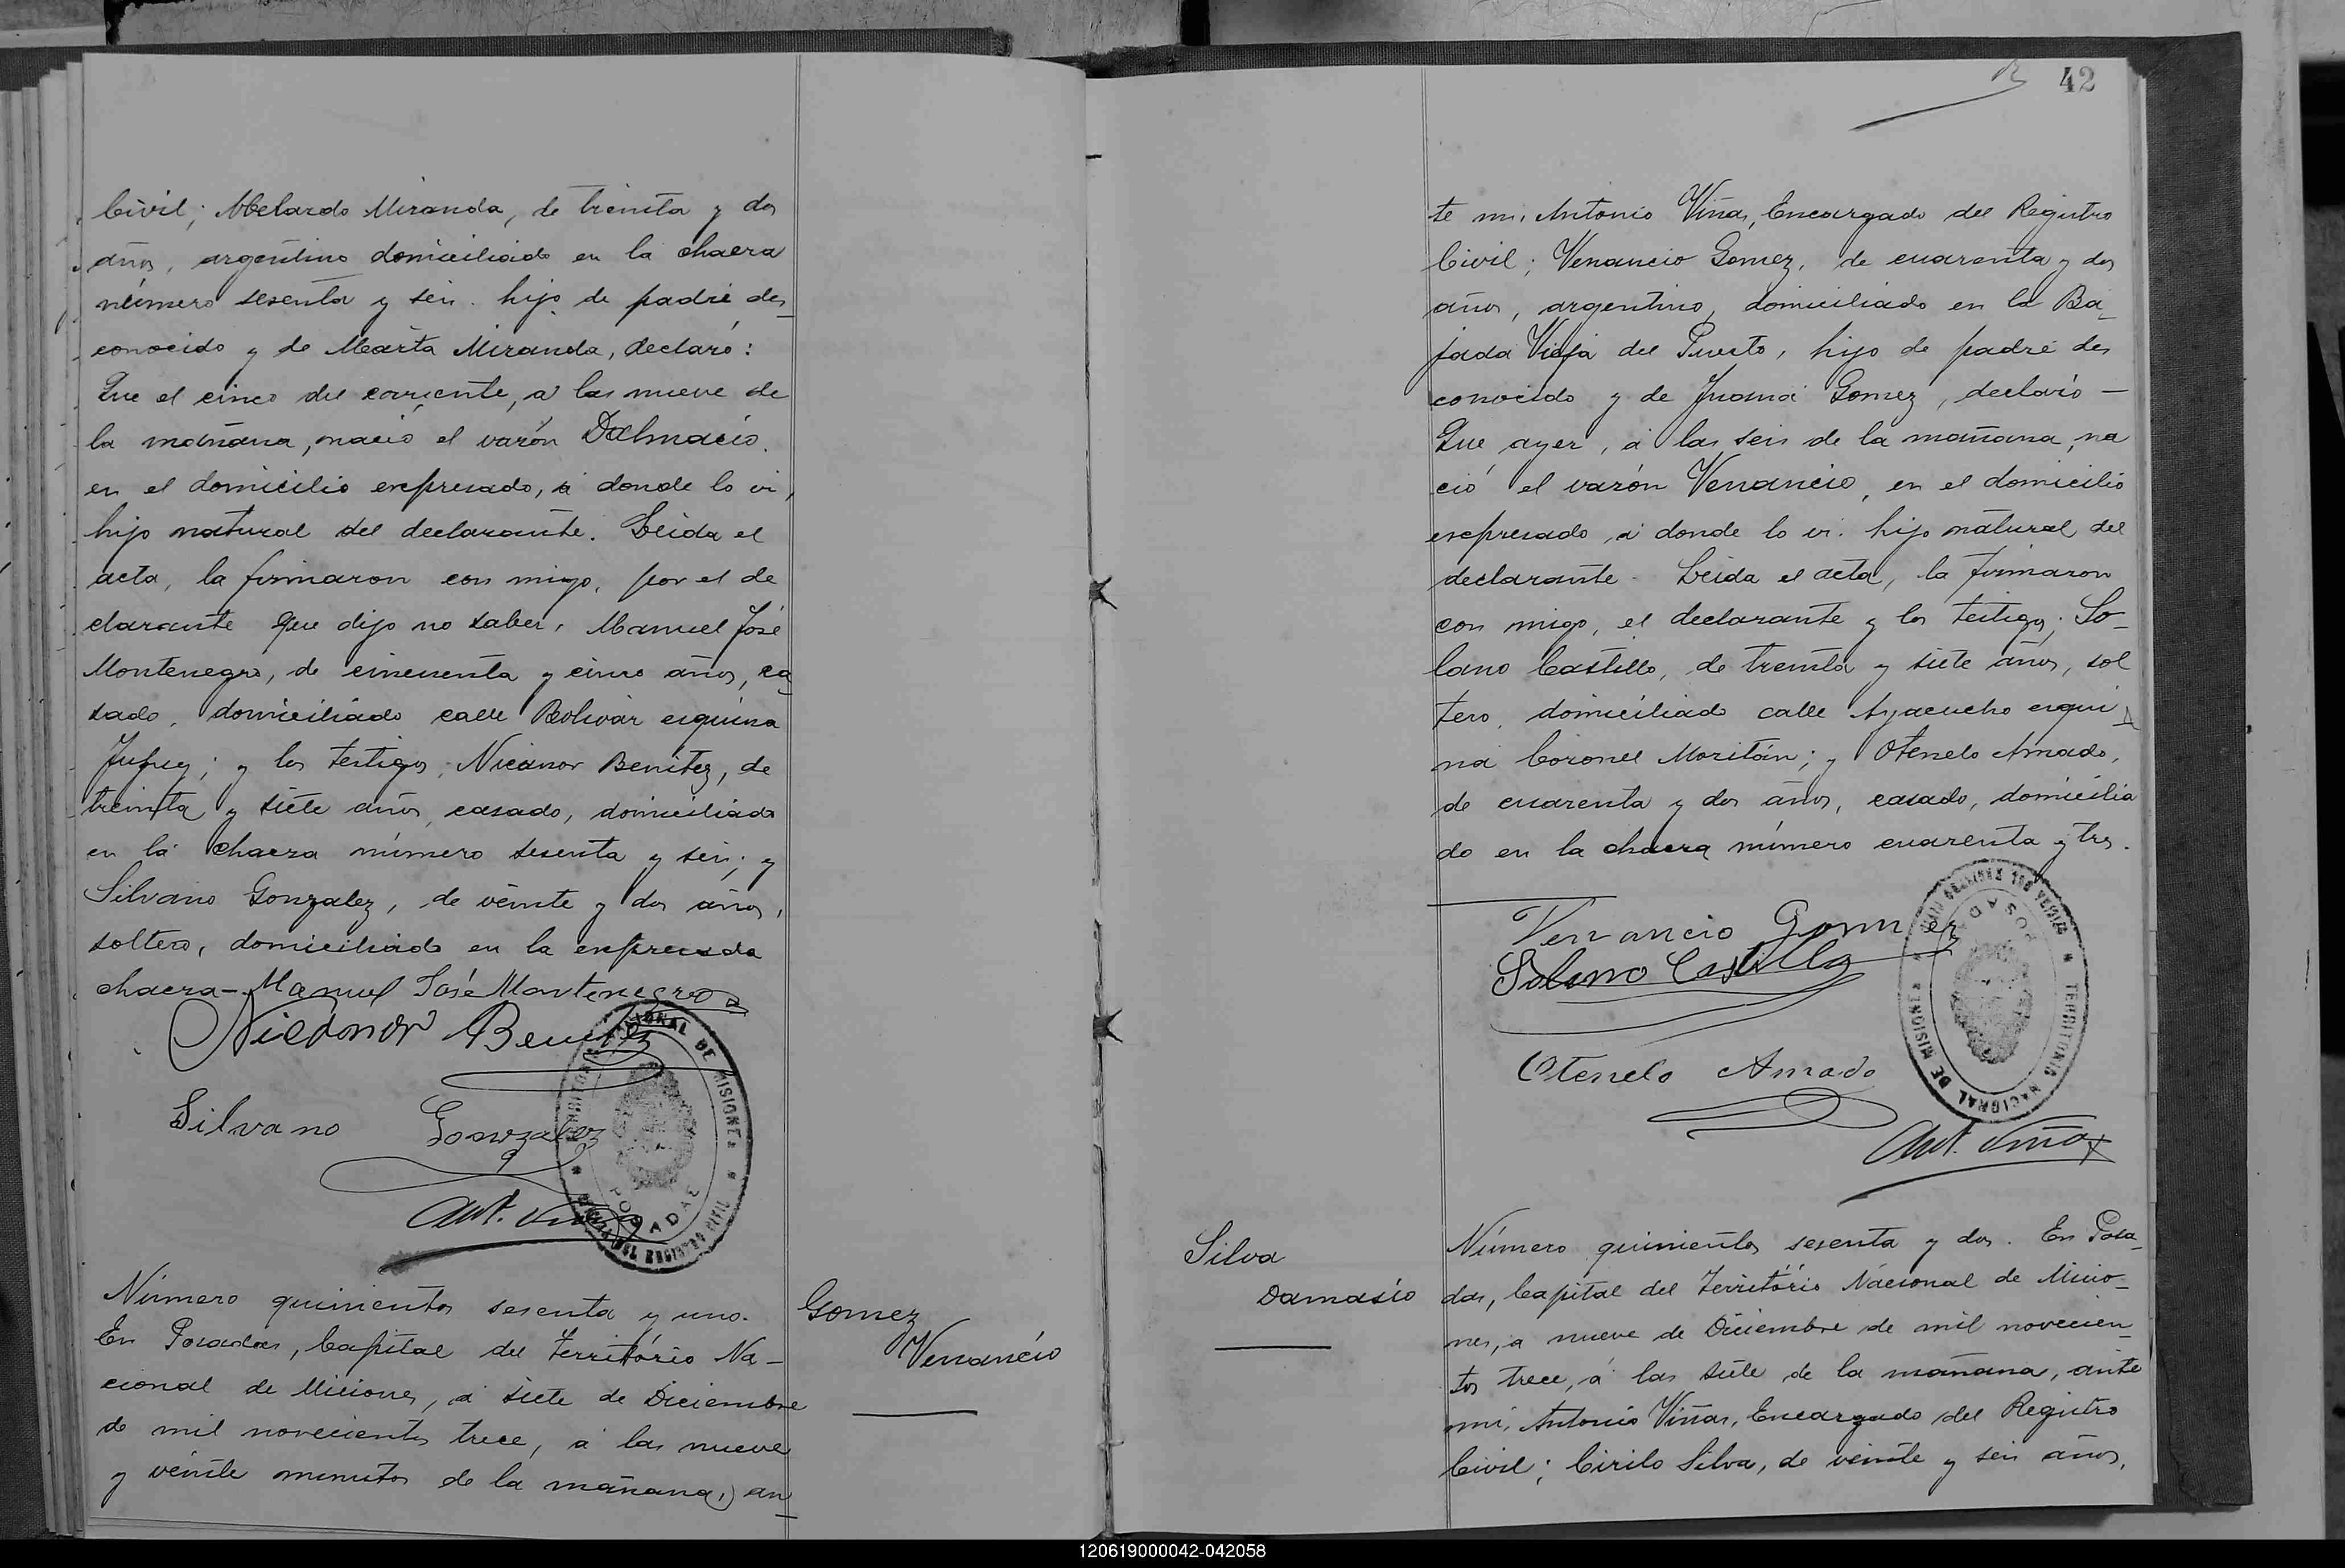 Civil; Abelardo Miranda, de treinta y dos
años, argentino domiciliado en la chacra
número sesenta y seis. hijo de padre des_
conocido y de Marta Miranda, declaró:
Que el cinco del corriente, a las nueve de
la mañana, nació el varón Dalmacio.
en el domicilio expresado, a donde lo vi,
hijo natural del declarante. Leida el
acta, la firmaron con migo, por el de
clarante que dijo no saber, Manuel José
Montenegro, de cincuenta y cinco años, ca_
sado, domiciliado calle Bolivar esquina
Jujuy; y los testigos; Nicanor Benitez, de
treinta y siete años, casado, domiciliado
en la chacra número sesenta y seis; y
Silvano Gonzalez, de veinte y dos años,
soltero, domiciliado en la expresada
chacra- Manuel José Montenegro
Nicanor Benitez
Silvano Gonzalez
Ant. Viñas
TERRITORIO NACIONAL DE MISIONES
POSADAS
Número quinientos sesenta y uno.
En Posadas, Capital del Territorio Na-
cional de Misiones, a siete de Diciembre
de mil novecientos trece, a las nueve
y veinte minutos de la mañana, an_
Gomez
Venancio
42
te mi, Antonio Viñas, Encargado del Registro
Civil; Venancio Gomez, de cuarenta y dos
años, argentino, domiciliado en la Ba_
jada Vieja del Puerto, hijo de padre des
conocido y de Juana Gomez, declaró —
Que ayer, a las seis de la mañana, na
ció el varón Venancio, en el domicilio
expresado, a donde lo vi. hijo natural del
declarante. Leida el acta, la firmaron
con migo, el declarante y los testigos; So-
lano Castillo, de treinta y siete años, sol
tero, domiciliado calle Ayacucho esqui_
na Coronel Moritán; y Otenelo Amado,
de cuarenta y dos años, casado, domicilia
do en la chacra número cuarenta y tres.
Venancio Gomez
Solano Castillo
Otenelo Amado
Ant. Viñas
TERRITORIO NACIONAL DE MISIONES
POSADAS
Silva
Damasio
Número quinientos sesenta y dos. En Posa_
das, Capital del Territorio Nacional de Misio_
nes, a nueve de Diciembre de mil novecien_
tos trece, a las siete de la mañana, ante
mi, Antonio Viñas, Encargado del Registro
Civil; Cirilo Silva, de veinte y seis años,
120619000042-042058